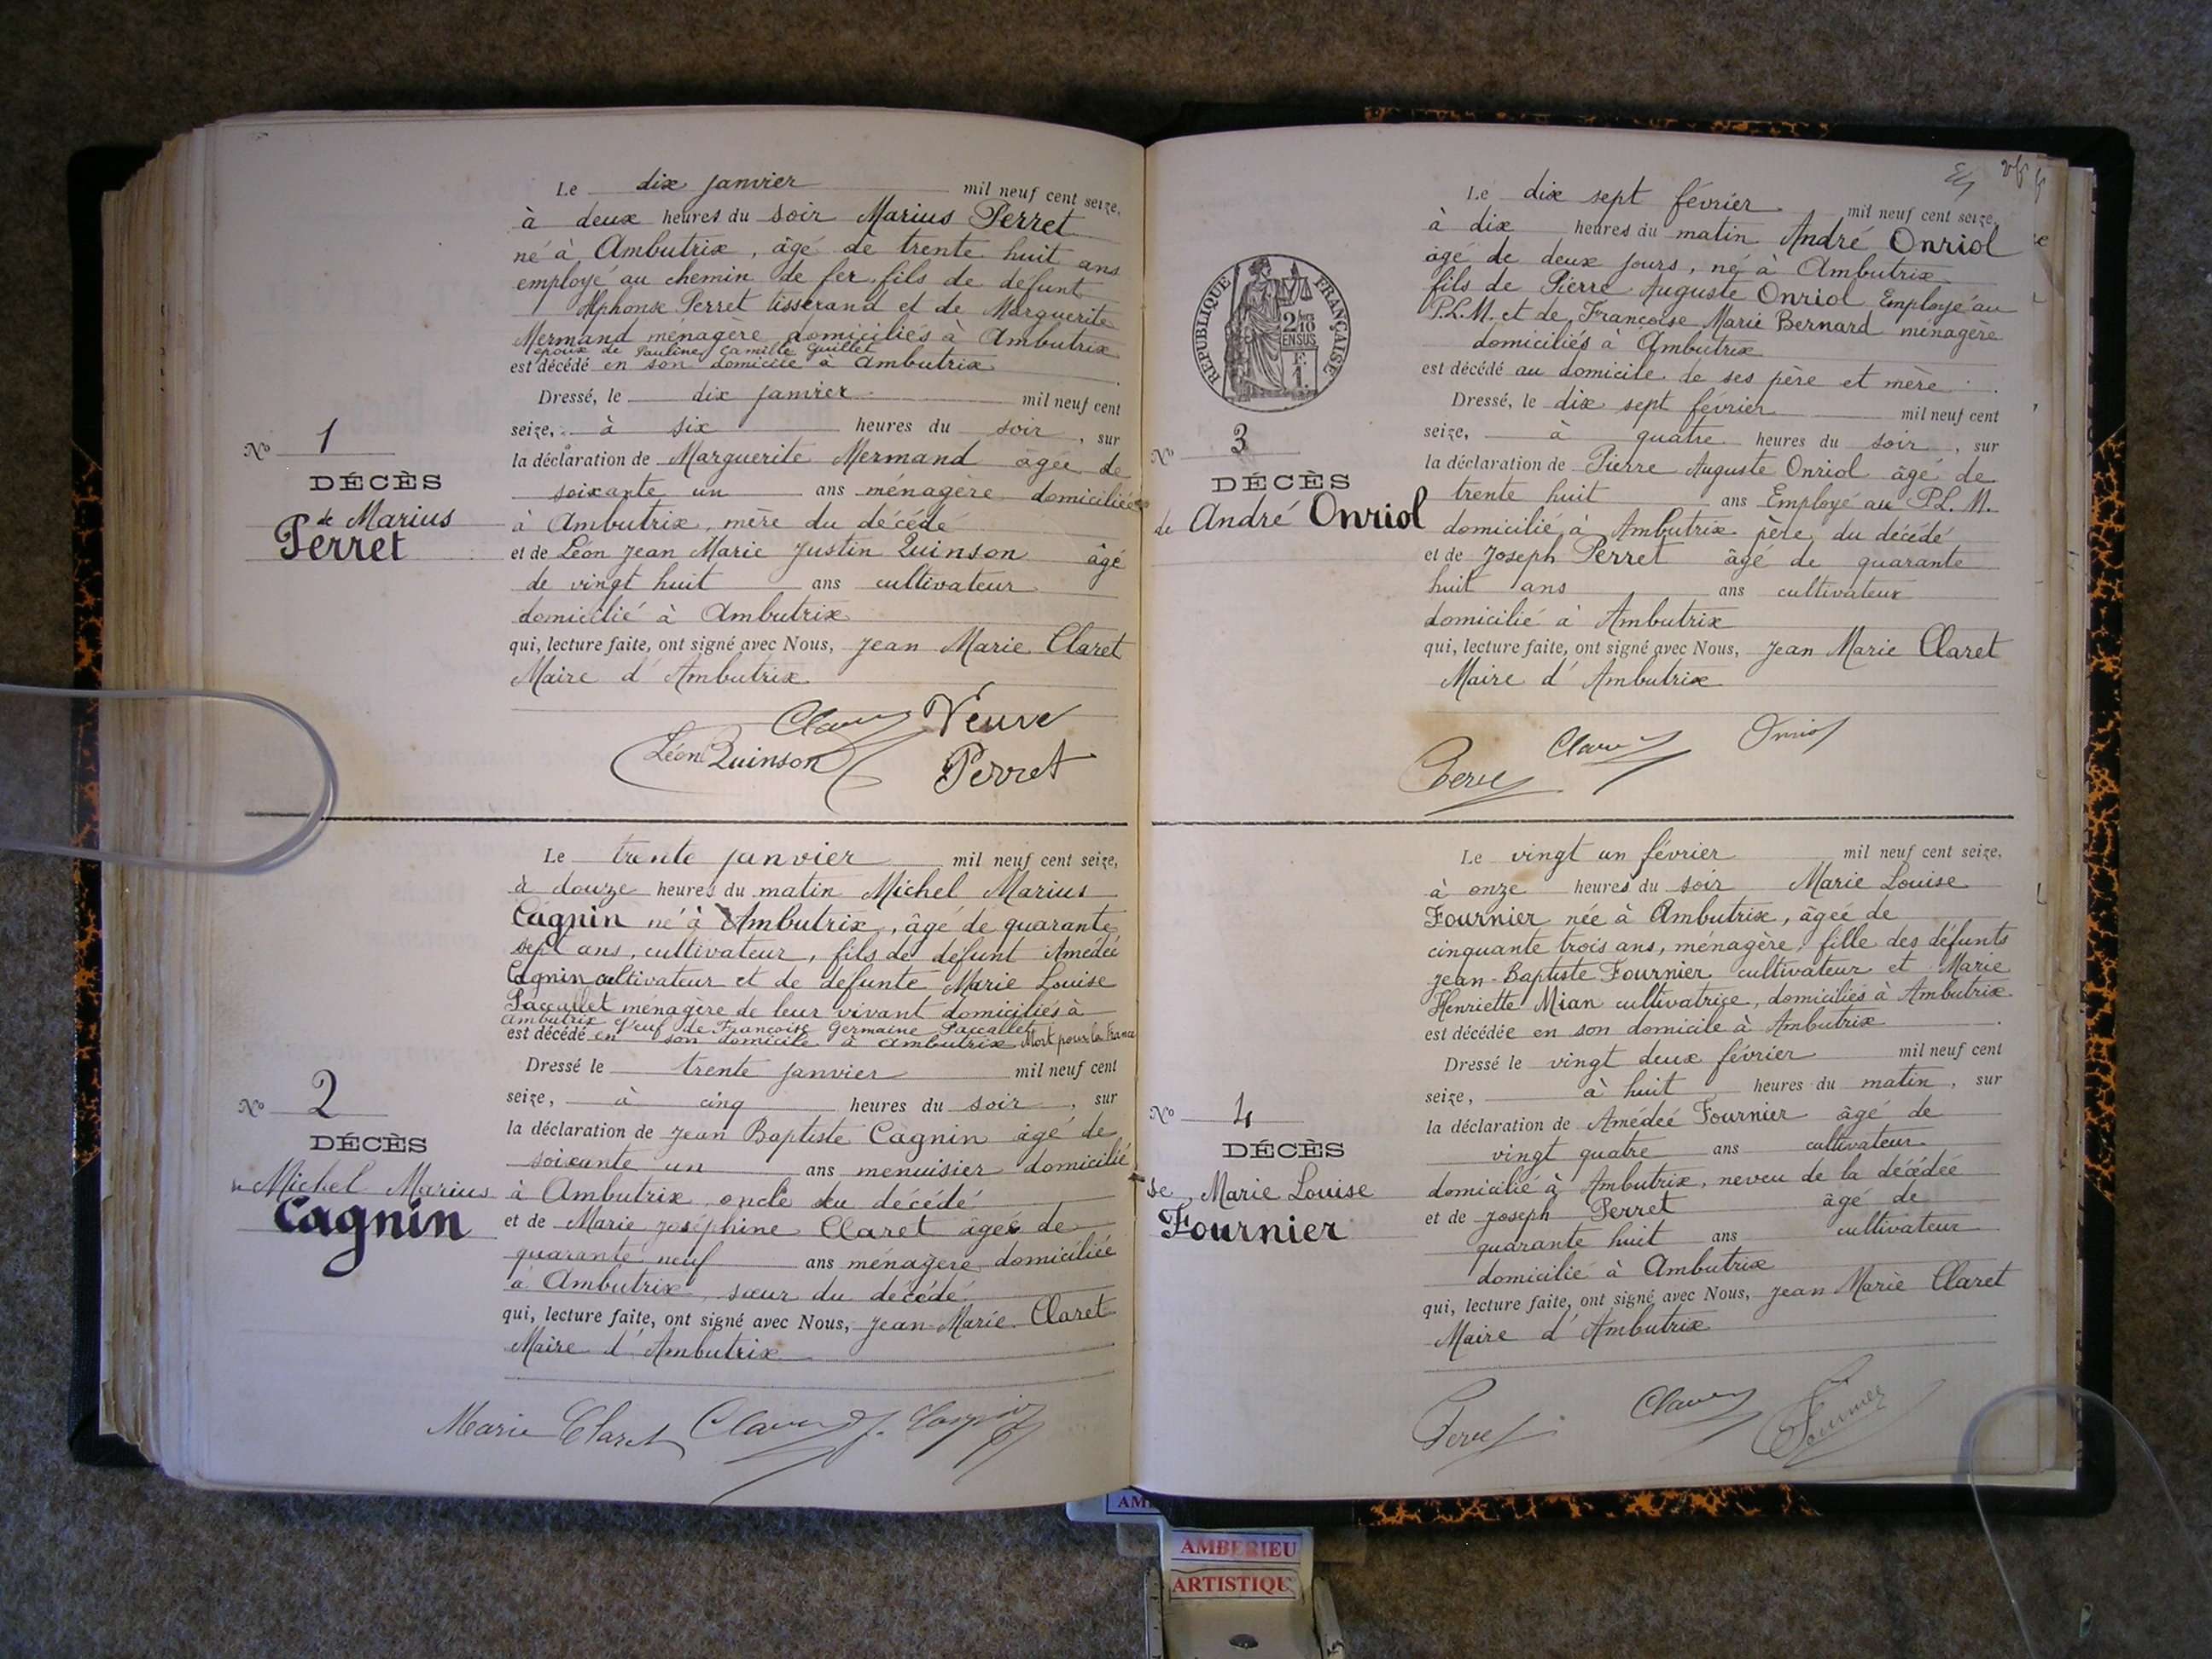 Le dix janvier mil neuf cent seize,
à deux heures du soir Marius Perret
né à Ambutrix, âgé de trente huit ans
employé au chemin de fer, fils de défunt
Alphonse Perret tisserand et de Marguerite
Mermand ménagère domiciliés à Ambutrix
époux de Pauline Camille Guillet
est décédé en son domicile à Ambutrix
Dressé, le dix janvier mil neuf cent
seize, à six heures du soir, sur
la déclaration de Marguerite Mermand âgée de
soixante un ans ménagère domiciliée
à Ambutrix, mère du décédé
et de Léon Jean Marie Justin Quinson âgé
de vingt huit ans cultivateur
domicilié à Ambutrix
qui, lecture faite, ont signé avec Nous, Jean Marie Claret
Maire d'Ambutrix
Nº 1
DÉCÈS
de Marius
Perret
Claret Veuve
Léon Quinson Perret
Le trente janvier mil neuf cent seize,
à douze heures du matin Michel Marius
Cagnin né à Ambutrix, âgé de quarante
sept ans, cultivateur, fils de défunt Amédée
Cagnin cultivateur et de défunte Marie Louise
Paccallet ménagère de leur vivant domiciliés à
Ambutrix Veuf de Françoise Germaine Paccallet
est décédé en son domicile à Ambutrix Mort pour la France
Dressé le trente janvier mil neuf cent
seize, à cinq heures du soir, sur
la déclaration de Jean Baptiste Cagnin âgé de
soixante un ans menuisier domicilié
à Ambutrix, oncle du décédé
et de Marie Joséphine Claret âgée de
quarante neuf ans ménagère domiciliée
à Ambutrix, sœur du décédé
qui, lecture faite, ont signé avec Nous, Jean-Marie Claret
Maire d'Ambutrix
Nº 2
DÉCÈS
Michel Marius
Cagnin
Marie Claret Claret J. Cagnin
Le dix sept février mil neuf cent seize,
à dix heures du matin André Onriol
âgé de deux jours, né à Ambutrix
fils de Pierre Auguste Onriol Employé au
P.L.M. et de Françoise Marie Bernard ménagère
domiciliés à Ambutrix
est décédé au domicile de ses père et mère
Dressé, le dix sept février mil neuf cent
seize, à quatre heures du soir, sur
la déclaration de Pierre Auguste Onriol âgé de
trente huit ans Employé au P.L.M.
domicilié à Ambutrix père du décédé
et de Joseph Perret âgé de quarante
huit ans ans cultivateur
domicilié à Ambutrix
qui, lecture faite, ont signé avec Nous, Jean Marie Claret
Maire d'Ambutrix
RÉPUBLIQUE FRANÇAISE
2/10
EN SUS
F.
1.
Nº 3
DÉCÈS
de André Onriol
Claret Onriol
Perret
Le vingt un février mil neuf cent seize,
à onze heures du soir Marie Louise
Fournier née à Ambutrix, âgée de
cinquante trois ans, ménagère, fille des défunts
Jean-Baptiste Fournier cultivateur et Marie
Henriette Mian cultivatrice, domiciliés à Ambutrix
est décédée en son domicile à Ambutrix
Dressé le vingt deux février mil neuf cent
seize, à huit heures du matin, sur
la déclaration de Amédée Fournier âgé de
vingt quatre ans cultivateur
domicilié à Ambutrix, neveu de la décédée
et de Joseph Perret âgé de
quarante huit ans cultivateur
domicilié à Ambutrix
qui, lecture faite, ont signé avec Nous, Jean Marie Claret
Maire d'Ambutrix
Nº 4
DÉCÈS
de Marie Louise
Fournier
Perret Claret Fournier
AMBERIEU
ARTISTIQU